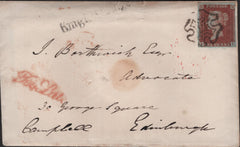 J. Borthwick Esqr
Advocate
30 George Square
Campbell Edinburgh